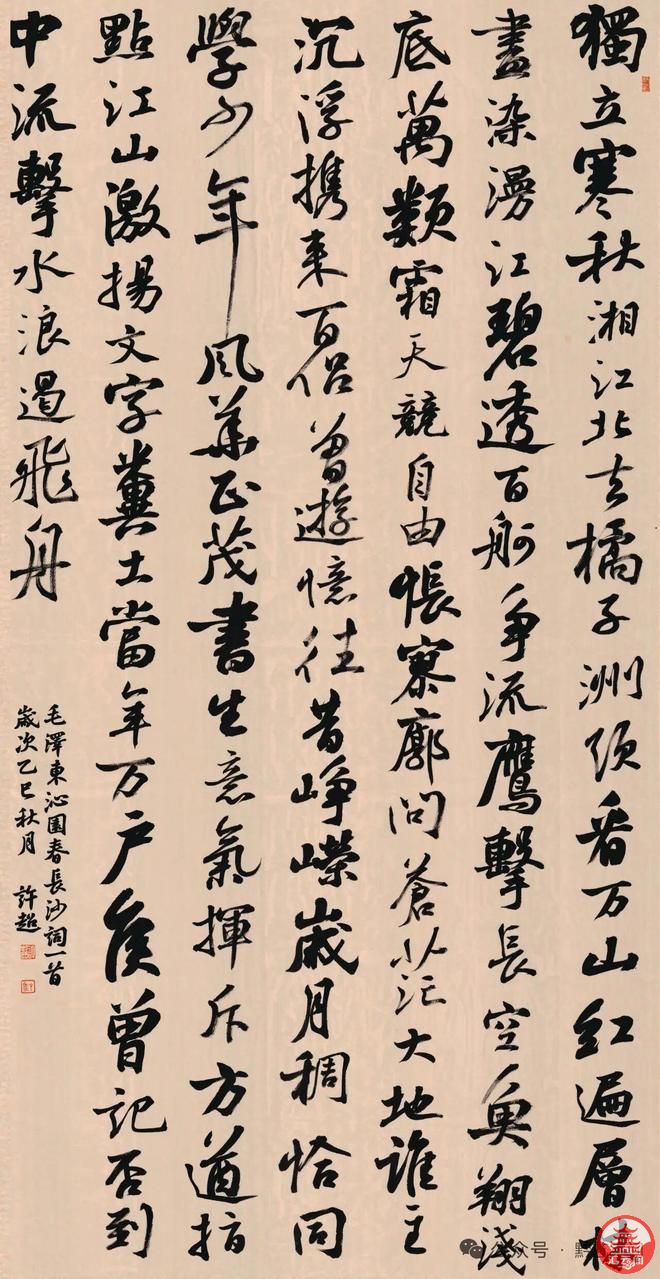 獨立寒秋湘江北去橘子洲頭看万山红遍層林
盡染漫江碧透百舸爭流鷹擊長空魚翔淺
底萬類霜天競自由悵寥廓問蒼茫大地誰主
沉浮携来百侣曾遊憶往昔崢嶸歲月稠恰同
學少年風華正茂書生意氣揮斥方遒指
點江山激揚文字糞土當年万户侯曾記否到
中流擊水浪遏飛舟
毛澤東沁园春長沙詞一首
歲次乙巳秋月 許超
公众号